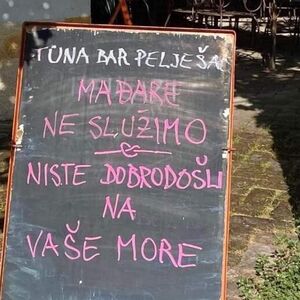 TUNA BAR PELJEŠA
MAĐARE
NE SLUŽIMO
NISTE DOBRODOŠLI
NA
VAŠE MORE